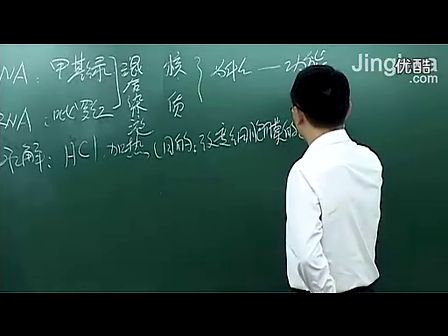 Jinghua
优酷
NA：甲基绿 混合染液 核质 为什么—功能
RNA：吡咯红
水解：HCl 加热（目的：改变细胞膜的